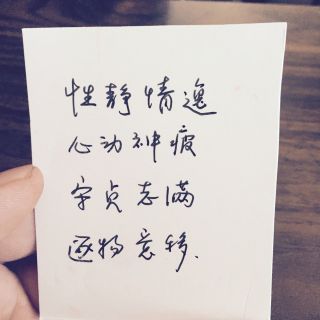 性静情逸
心动神疲
守贞志满
逐物意移、